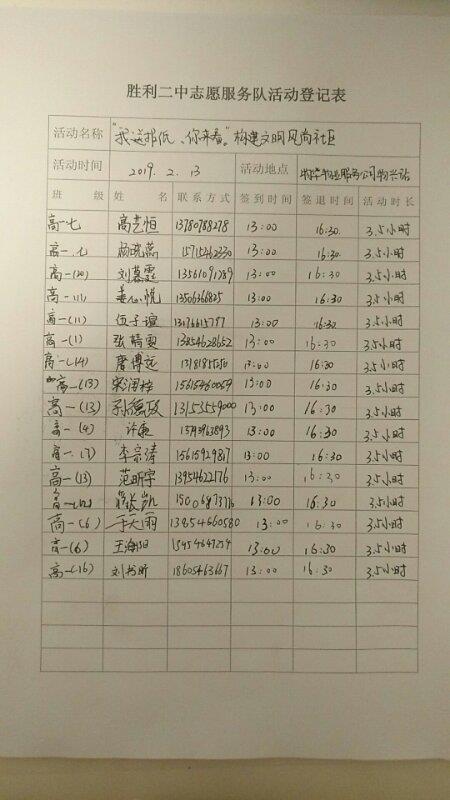 胜利二中志愿服务队活动登记表
活动名称 "我送报纸、你来看。"构建文明风尚社区
活动时间 2019. 2. 13 活动地点 物业服务公司
班 级 姓 名 联系方式 签到时间 签退时间 活动时长
高一七 高艺恒 13780788278 13:00 16:30 3.5小时
高一.七 13:00 16:30 3.5小时
高一(20) 刘慕霆 13561091289 13:00 16:30 3.5小时
高一(11) 13506368825 13:00 16:30 3.5小时
高一(11) 伍子瑄 13:00 16:30 3.5小时
高一(1) 张精雯 13854628652 13:00 16:30 3.5小时
高一(14) 唐傅远 13:00 16:30 3.5小时
高一(13) 15615460069 13:00 16:30 3.5小时
高一(13) 13153559000 13:00 16:30 3.5小时
高一(4) 13:00 16:30 3.5小时
高一(7) 李宗涛 15615929817 13:00 16:30 3.5小时
高一(13) 范昕宇 13954622176 13:00 16:30 3.5小时
高一(12) 凯 13:00 16:30 3.5小时
高一(6) 于天雨 13854660580 13:00 16:30 3.5小时
高一(6) 13:00 16:30 3.5小时
高一(16) 刘书昕 18605463667 13:00 16:30 3.5小时